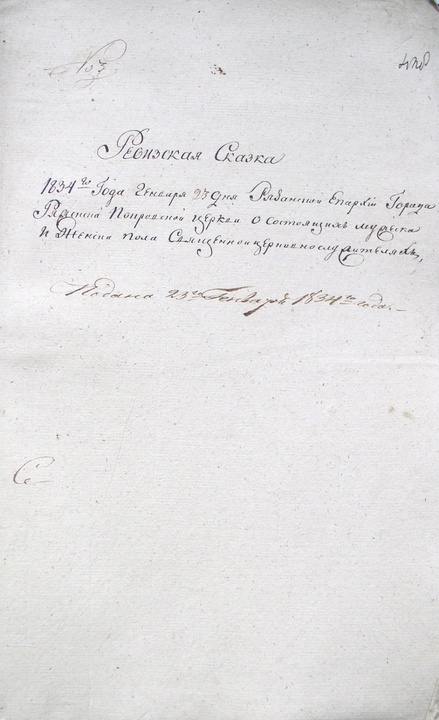 № 3
Ревизская Сказка
1834го Года Генваря 23 дня Рязанской Епархіи Города
Ряжска Покровской церкви о состоящихъ мужеска
и Женска пола Священноцерковнослужителяхъ,
Подана 23го Генваря 1834го года.